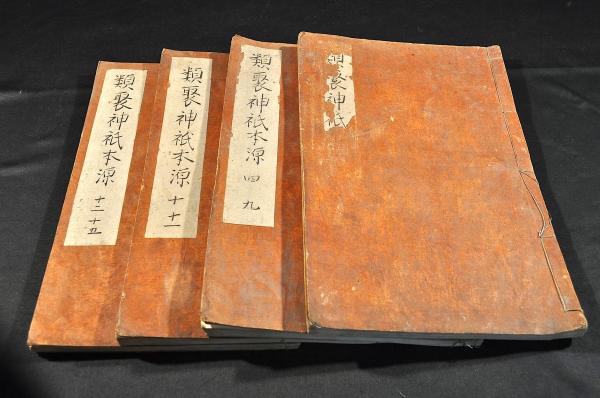 類聚神祇本源 十二 十五
類聚神祇本源 十 十一
類聚神祇本源 四 九
類聚神祇